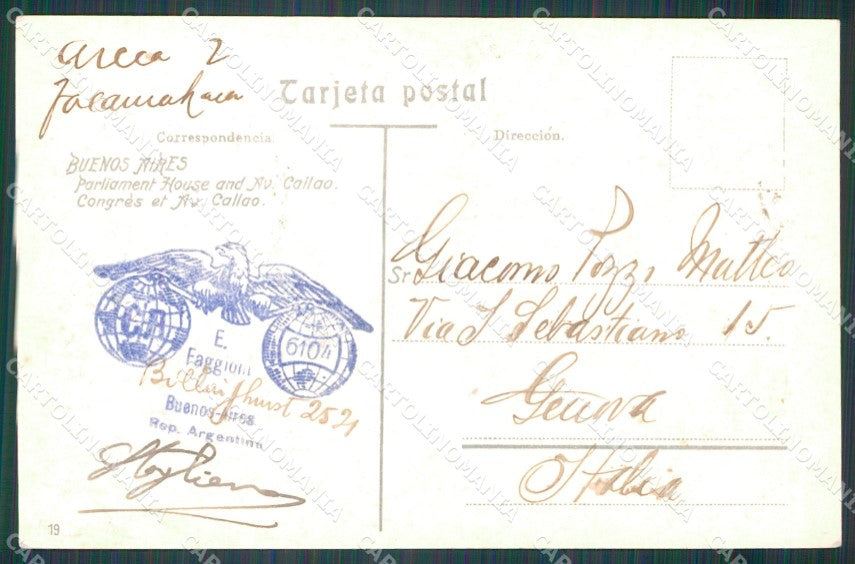 Tarjeta postal
Correspondencia.
Dirección.
BUENOS AIRES
Parliament House and Av. Callao.
Congrès et Av. Callao.
6104
E.
Faggioni
Billinghurst 2521
Buenos-Aires
Rep. Argentina
19
Sr Giacomo Pozzi Matteo
Via S Sebastiano 15.
Genova
Italia
CARTOLINOMANIA